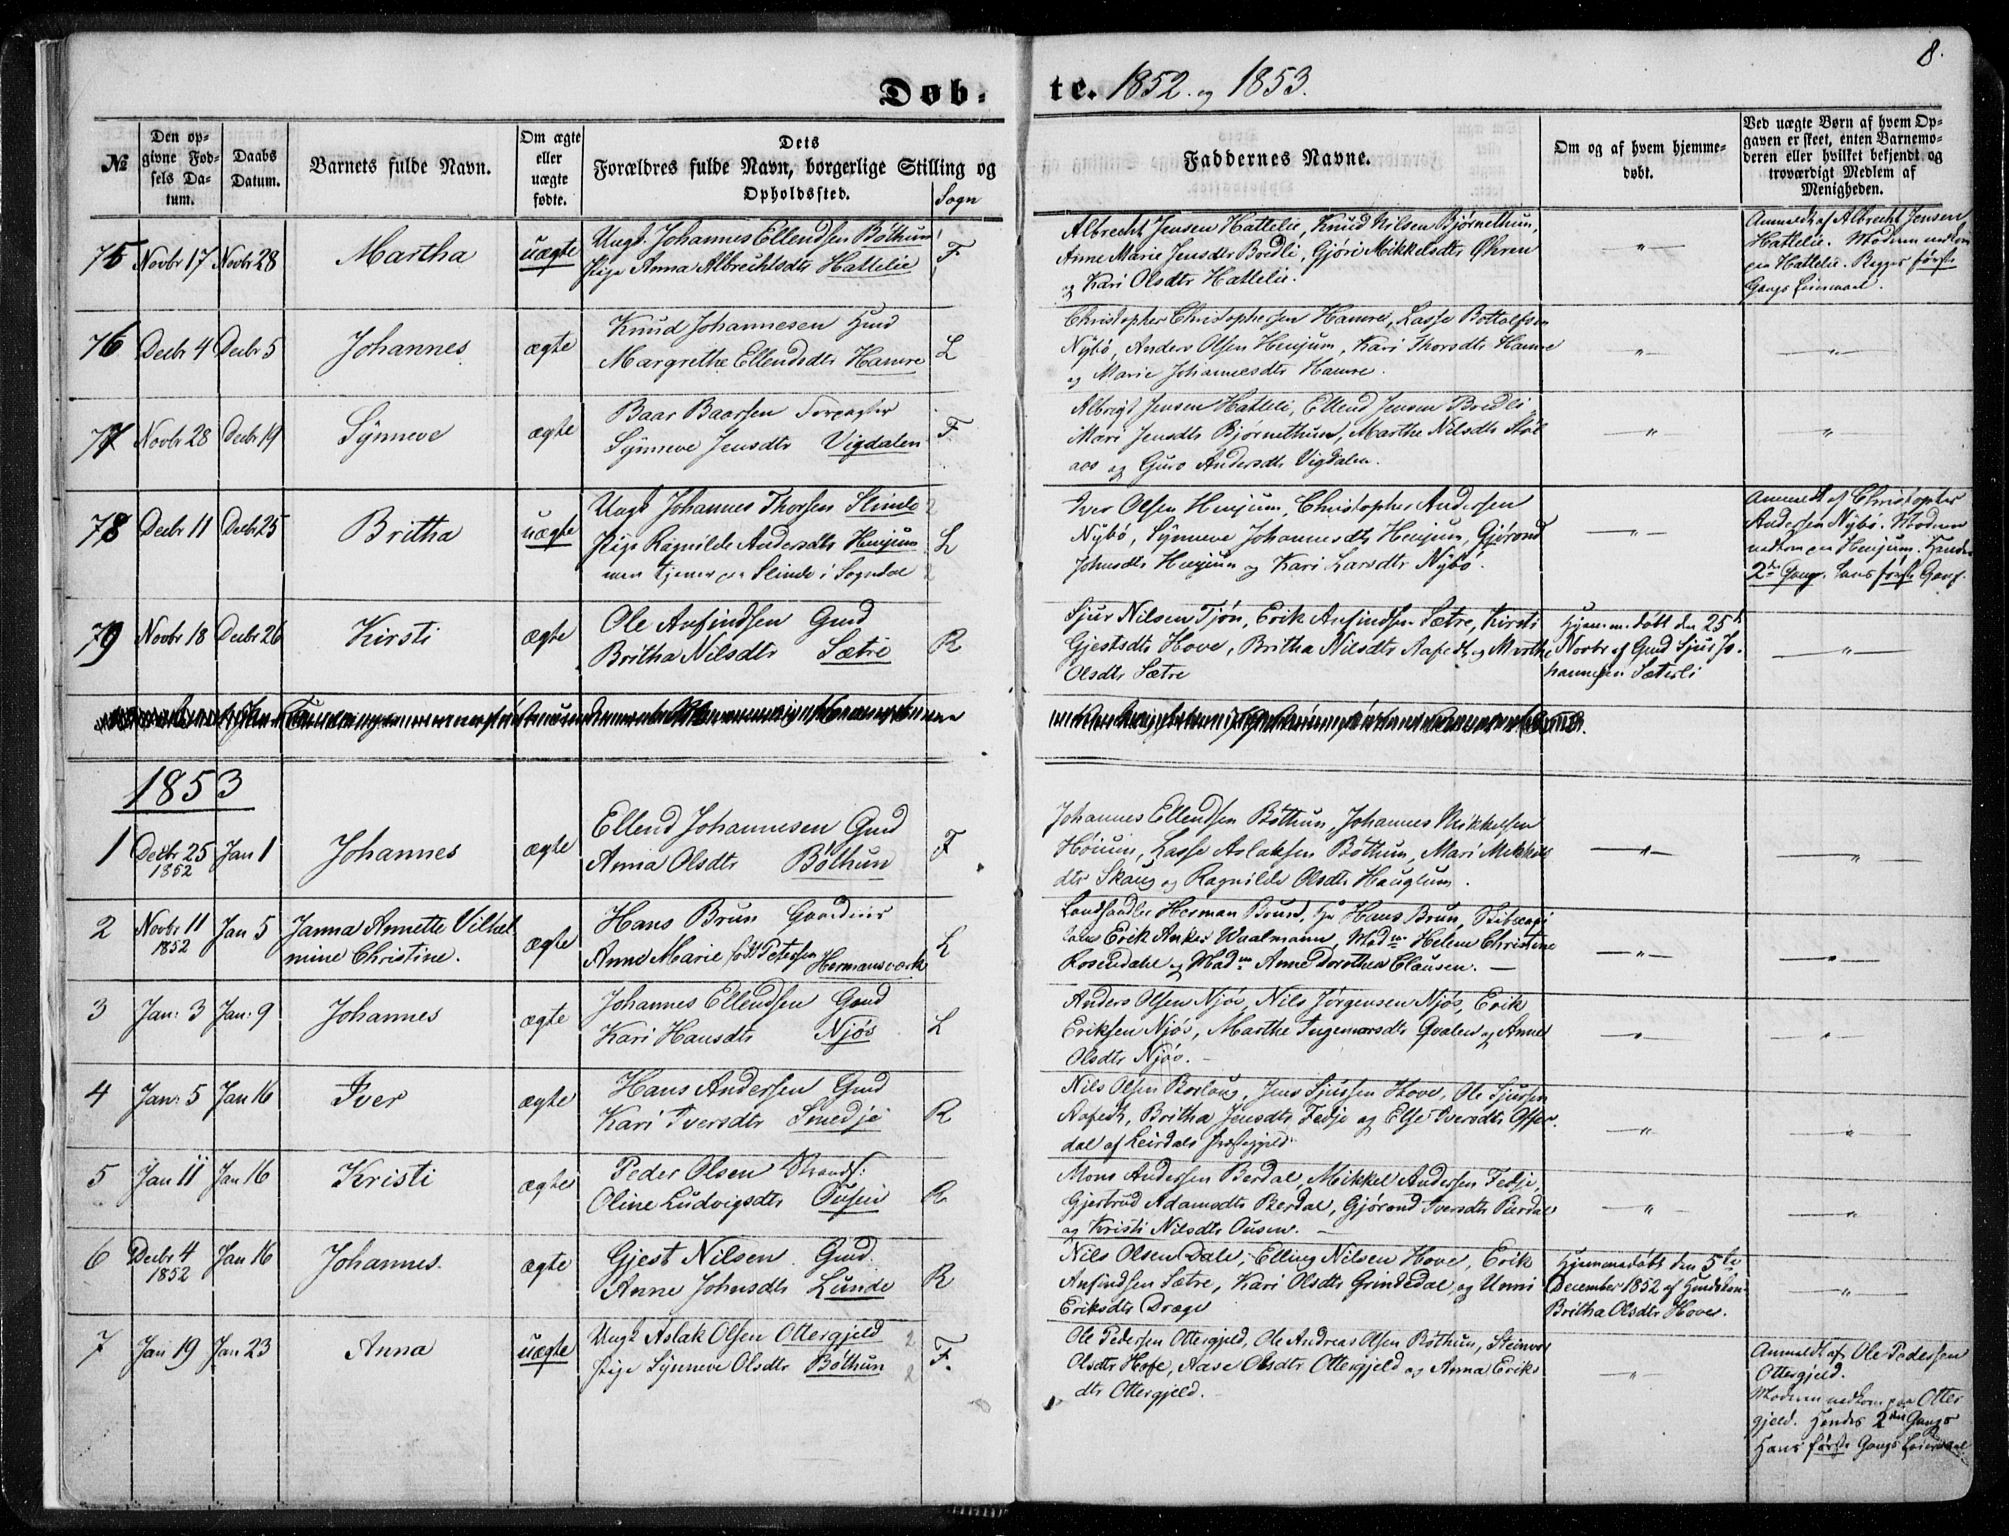 8.
Døb-
te. 1852. og 1853.
№
Den op-
givne Fød-
sels Da-
tum.
Daabs
Datum.
Barnets fulde Navn.
Om ægte
eller
uægte
fødte.
Dets
Forældres fulde Navn, borgerlige Stilling og
Opholdssted.
Sogn
Faddernes Navne.
Om og af hvem hjemme-
døbt.
Ved uægte Børn af hvem Op-
gaven er skeet, enten Barnemo-
deren eller hvilket bekjendt og
troværdigt Medlem af
Menigheden.
75 Novbr 17 Novbr 28 Martha uægte
Ungk. Johannes Ellendsen Bøthun
Pige Anna Albrechtsdtr Hattelie
F
Albrecht Jensen Hattelie, Knud Nilsen Bjørnethun,
Anne Marie Jensdtr Bredli, Gjøri Mikkelsdtr Øhren
og Kari Olsdtr Hattelie.
"
Anmeldt af Albrecht Jensen
Hattelie. Moderen nedkom
paa Hattelie. Begges første
Gangs Leiermaal.
76 Decbr 4 Decbr 5 Johannes ægte
Knud Johannesen Hmd
Margrethe Ellendsdtr Hamre
L
Christopher Christophersen Hamre, Lasse Bottolfsen
Nybø, Anders Olsen Henjum, Kari Thorsdtr Hamre
og Marie Johannesdtr Hamre.
"
"
77 Novbr 28 Decbr 19 Synneve ægte
Baar Baarsen Forpagter
Synneve Jensdtr Vigdalen
F
Albrigt Jensen Hatteli, Ellend Jensen Bredli,
Mari Jensdtr Bjørnethun, Marthe Nilsdtr Støl
aos og Guro Andersdtr Vigdalen.
"
"
78 Decbr 11 Decbr 25 Britha uægte
Ungk Johannes Thorsen Slinde 2
Pige Ragnilde Andersdtr Henjum
men tjener paa Slinde i Sogndal 2
L
Iver Olsen Henjum, Christopher Andersen
Nybø, Synneve Johannesdtr Henjum, Gjørond
Johnsdtr Henjum og Kari Larsdtr Nybø.
"
Anmeldt af Christopher
Andersen Nybø. Moderen
nedkom paa Henjum. Hendes
2de Gang. hans første Gang.
79 Novbr 18 Decbr 26 Kirsti ægte
Ole Anfindsen Gmd
Britha Nilsdtr Sætre
R
Sjur Nilsen Tjøn, Erik Anfindsen Sætre, Kirsti
Gjestsdtr Hove, Britha Nilsdtr Aafedt og Marthe
Olsdtr Sætre
Hjemmedøbt den 25de
Novbr af Gmd Sjur Jo-
hannesen Sæterli
"
1853
1 Decbr 25 1852 Jan 1 Johannes ægte
Ellend Johannesen Gmd
Anna Olsdtr Bøthun
F
Johannes Ellendsen Bøthun, Johannes Mikkelsen
Høium, Lasse Aslaksen Bøthun, Mari Mikkels
dtr Skaug og Ragnilde Olsdtr Hauglum.
"
"
2 Novbr 11 1852 Jan 5 Janna Annette Vilhel
mine Christine. ægte
Hans Brun
Anne Marie født Petersen Hermansværk
L
Landhandler Herman Brun, Hr Hans Brun,
Erik Anker Waalmann, Madm Helene Christine
Rosendahl og Madm Anne Dorothea Clausen.
"
"
3 Jan: 3 Jan: 9 Johannes ægte
Johannes Ellendsen Gmd
Kari Hansdtr Njøs
L
Anders Olsen Njøs, Nils Jørgensen Njøs, Erik
Eriksen Njøs, Marthe Ingemarsdtr Qvalen og Anne
Olsdtr Njøs.
"
"
4 Jan: 5 Jan 16 Iver ægte
Hans Andersen Gmd
Kari Iversdtr Smedje
R
Nils Olsen Borlaug, Jens Sjursen Hove, Ole Sjursen
Aafedt, Britha Jensdtr Fedje og Else Iversdtr Offer-
dal af Leirdals Præstegjeld
"
"
5 Jan 11 Jan 16 Kristi ægte
Peder Olsen Strands:
Oline Ludvigsdtr Ousen
R
Mons Andersen Berdal, Mikkel Andersen Fedje,
Gjertrud Adamsdtr Berdal, Gjørond Iversdtr Berdal
og Kristi Nilsdtr Ousen.
"
"
6 Decbr 4 1852 Jan 16 Johannes. ægte
Gjest Nilsen Gmd.
Anne Johnsdtr Lunde
R
Nils Olsen Dale, Elling Nilsen Hove, Erik
Anfindsen Sætre, Kari Olsdtr Grindedal og Unni
Eriksdtr Drage
Hjemmedøbt den 5te
December 1852 af
Britha Olsdtr Hove.
"
7 Jan 19 Jan 23 Anna uægte
Ungk Aslak Olsen Ottergjeld 2
Pige Synneve Olsdtr Bøthun 2
F.
Ole Pedersen Ottergjeld, Ole Andreas Olsen Bøthun, Steinvor
Olsdtr Hofe, Aase Olsdtr Ottergjeld og Anna Eriks
dtr Ottergjeld.
"
Anmeldt af Ole Pedersen
Ottergjeld.
Moderen nedkom paa Otter
gjeld. Hendes 2den Gangs
Hans første Gangs Leiermaal.